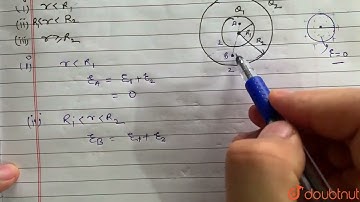 (i) r < R₁
(ii) R₁<r<R₂
(iii) r ≥ R₂
(i) r < R₁
ξ_A = ξ₁ + ξ₂
= 0
(ii) R₁ < r < R₂
ξ_B = ξ₁ + ξ₂
Q₁
Q₂
A
R₁
R₂
B
1
2
ξ=0
doubtnut